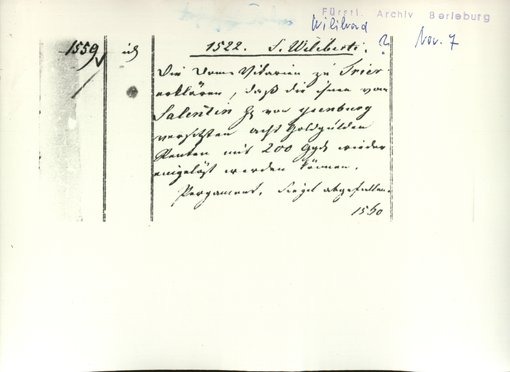 Fürstl. Archiv Berleburg
Wilibrord ? Nov. 7
1559 1522. S. Wiliberti.
Die Dom-Vikarien zu Trier
erklären, daß die ihnen von
Salentin H. zu Isenburg
versetzten acht Goldgulden
Renten mit 200 Ggld wieder
eingelöst werden können.
Pergament. Siegel abgefallen.
1560